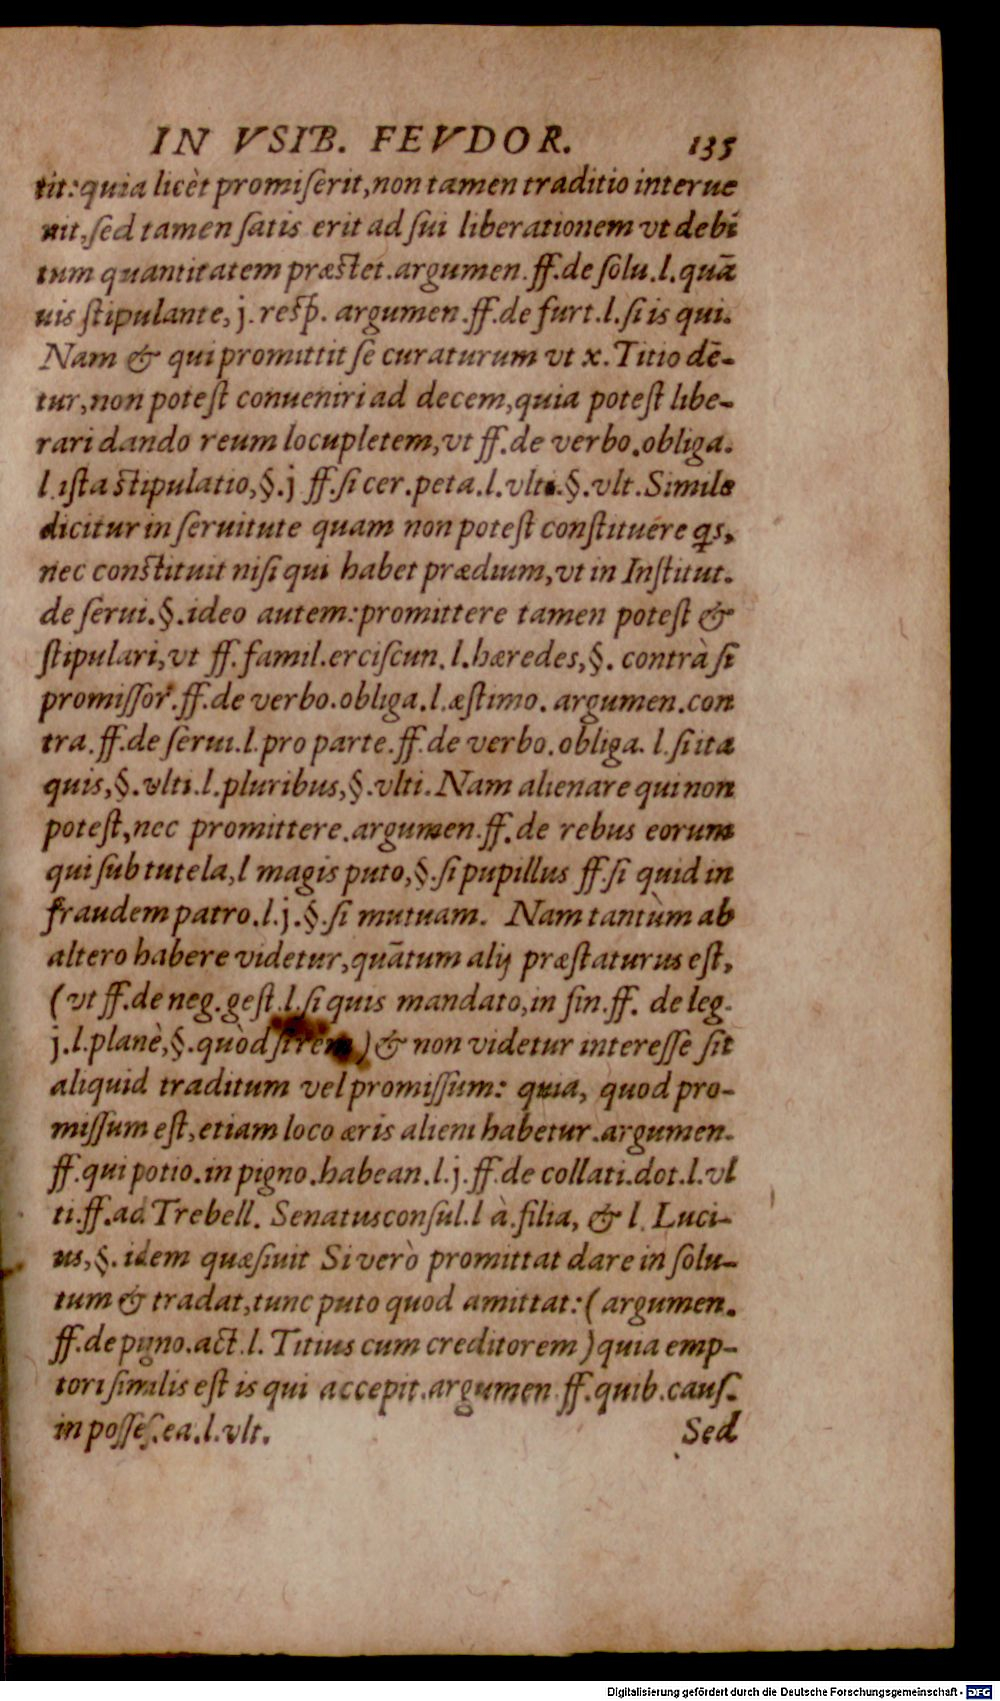 IN VSIB. FEVDOR. 135
tit: quia licèt promiserit, non tamen traditio interue
nit, sed tamen satis erit ad sui liberationem vt debi
tum quantitatem præstet. argumen. ff. de solu. l. quā
uis stipulante, j. resp̄. argumen. ff. de furt. l. si is qui.
Nam & qui promittit se curaturum vt x. Titio dē-
tur, non potest conueniri ad decem, quia potest libe-
rari dando reum locupletem, vt ff. de verbo. obliga.
l. ista stipulatio, §. j ff. si cer. peta. l. vlti. §. vlt. Simile
dicitur in seruitute quam non potest constituere qs,
nec constituit nisi qui habet prædium, vt in Institut.
de serui. §. ideo autem: promittere tamen potest &
stipulari, vt ff. famil. erciscun. l. hæredes, §. contrà si
promissor. ff. de verbo. obliga. l. æstimo. argumen. con
tra. ff. de serui. l. pro parte. ff. de verbo. obliga. l. si ita
quis, §. vlti. l. pluribus, §. vlti. Nam alienare qui non
potest, nec promittere. argumen. ff. de rebus eorum
qui sub tutela, l magis puto, §. si pupillus ff. si quid in
fraudem patro. l. j. §. si mutuam. Nam tantùm ab
altero habere videtur, quātum alij præstaturus est,
(vt ff. de neg. gest. l. si quis mandato, in fin. ff. de leg.
j. l. planè, §. quòd si rem) & non videtur interesse sit
aliquid traditum vel promissum: quia, quod pro-
missum est, etiam loco æris alieni habetur. argumen.
ff. qui potio. in pigno. habean. l. j. ff. de collati. dot. l. vl
ti. ff. ad Trebell. Senatusconsul. l à. filia, & l. Luci-
us, §. idem quæsiuit Si verò promittat dare in solu-
tum & tradat, tunc puto quod amittat: (argumen.
ff. de pigno. act. l. Titius cum creditorem) quia emp-
tori similis est is qui accepit. argumen ff. quib. caus.
in posses. ea. l. vlt. Sed
Digitalisierung gefördert durch die Deutsche Forschungsgemeinschaft - DFG